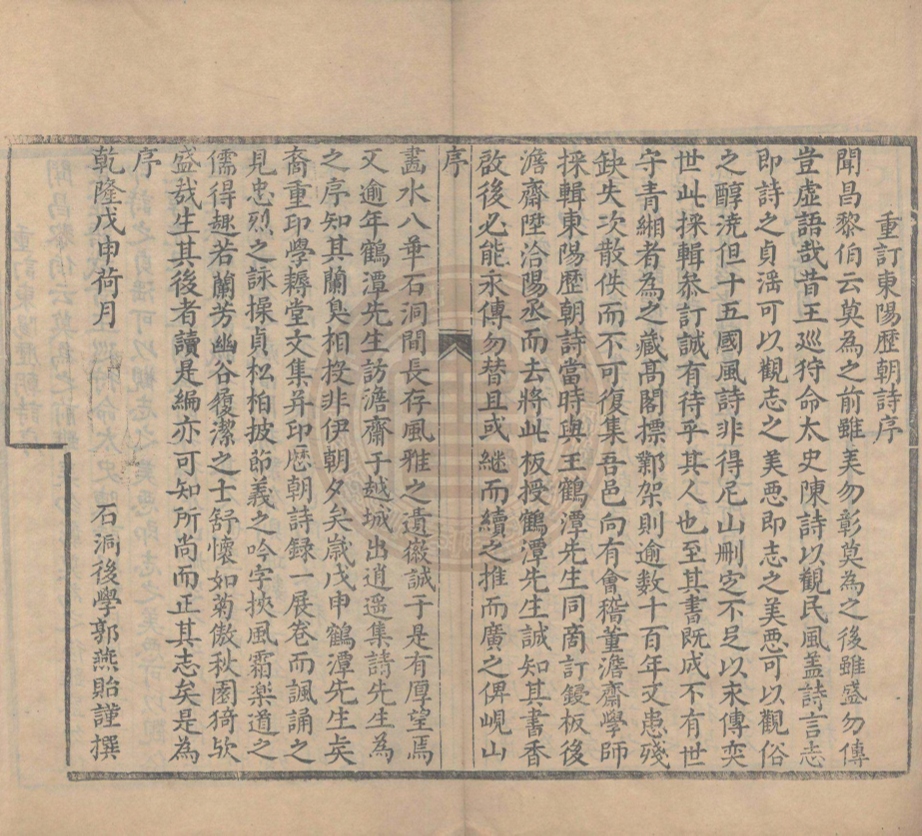 重訂東陽歷朝詩序
聞昌黎伯云莫為之前雖美勿彰莫為之後雖盛勿傳
豈虛語哉昔王巡狩命太史陳詩以觀民風盖詩言志
即詩之貞滛可以觀志之美悪即志之美悪可以觀俗
之醇浇但十五國風詩非得尼山删定不足以末傳奕
世此採輯叅訂誠有待乎其人也至其書既成不有世
守青緗者為之藏高閣摽鄴架則逾数十百年又患殘
缺失次散佚而不可復集吾邑向有會稽董澹齋學師
採輯東陽歷朝詩當時與王鶴潭先生同商訂鋟板後
澹齋陞洽陽丞而去將此板授鶴潭先生誠知其書香
啟後必能永傳勿替且或継而續之推而廣之俾峴山
序
畵水八華石洞間長存風雅之遺徽誠于是有厚望焉
又逾年鶴潭先生訪澹齋于越城出逍遥集詩先生為
之序知其蘭臭相投非伊朝夕矣嵗戊申鶴潭先生矣
裔重印學耨堂文集并印厯朝詩録一展卷而諷誦之
見忠烈之詠操貞松柏披節義之吟字挾風霜楽道之
儒得趣若蘭芳幽谷履潔之士舒懷如菊傲秋園猗欤
盛㢤生其後者讀是編亦可知所尚而正其志矣是為
序
乾隆戊申荷月 石洞後學郭燕貽謹撰